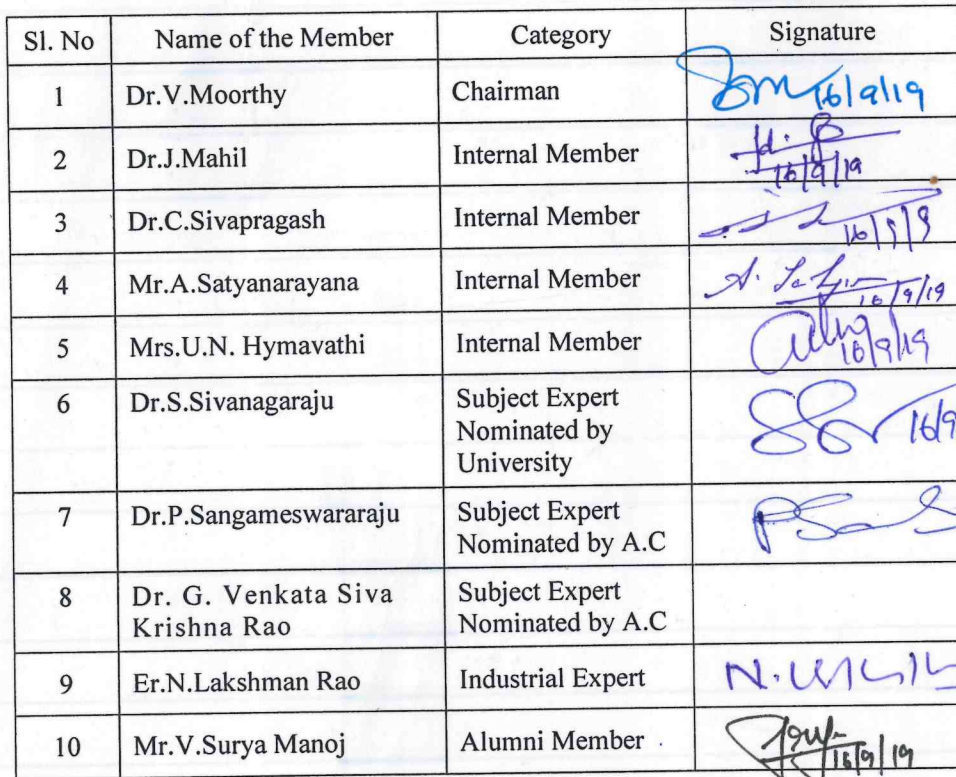 Sl. No Name of the Member Category Signature
1 Dr.V.Moorthy Chairman 16/9/19
2 Dr.J.Mahil Internal Member
16/9/19
3 Dr.C.Sivapragash Internal Member
16/9/19
4 Mr.A.Satyanarayana Internal Member A.
16/9/19
5 Mrs.U.N. Hymavathi Internal Member
16/9/19
6 Dr.S.Sivanagaraju Subject Expert
Nominated by 16/9
University
7 Dr.P.Sangameswararaju Subject Expert
Nominated by A.C
8 Dr. G. Venkata Siva Subject Expert
Krishna Rao Nominated by A.C
9 Er.N.Lakshman Rao Industrial Expert N.
10 Mr.V.Surya Manoj Alumni Member
16/9/19